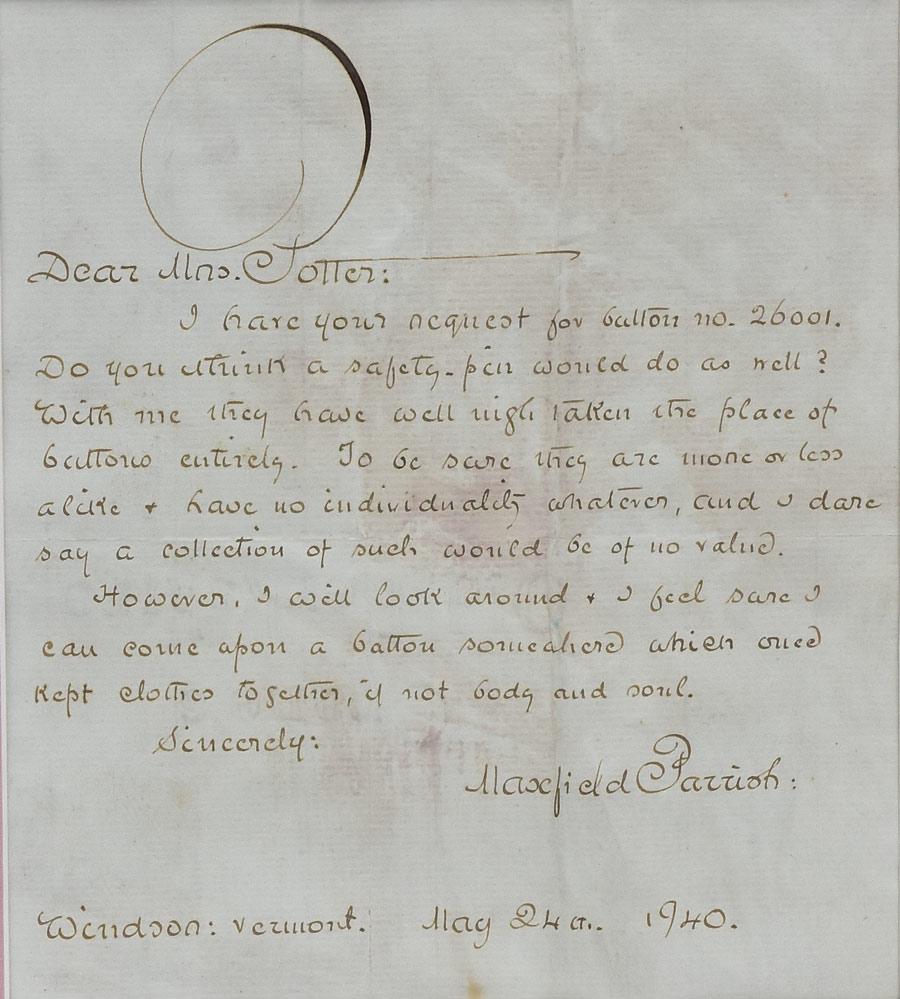 Dear Mrs. Potter:
I have your request for button no. 26001.
Do you think a safety-pin would do as well?
With me they have well nigh taken the place of
buttons entirely. To be sure they are more or less
alike & have no individuality whatever, and I dare
say a collection of such would be of no value.
However, I will look around & I feel sure I
can come upon a button somewhere which once
kept clothes together, if not body and soul.
Sincerely:
Maxfield Parrish:
Windsor: Vermont. May 24th. 1940.